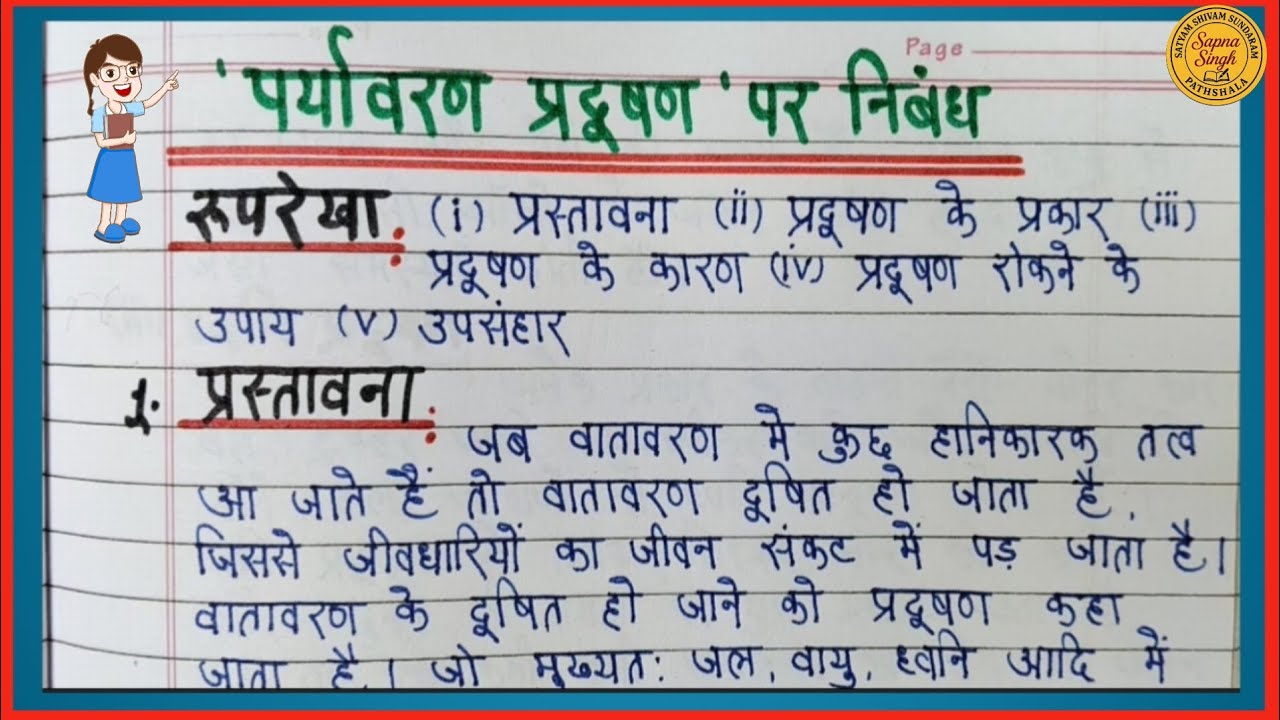 Page
SATYAM SHIVAM SUNDARAM
Sapna
Singh
PATHSHALA
'पर्यावरण प्रदूषण' पर निबंध
रुपरेखा: (i) प्रस्तावना (ii) प्रदूषण के प्रकार (iii)
प्रदूषण के कारण (iv) प्रदूषण रोकने के
उपाय (v) उपसंहार
1. प्रस्तावना:
जब वातावरण मे कुछ हानिकारक तत्व
आ जाते हैं तो वातावरण दूषित हो जाता है,
जिससे जीवधारियों का जीवन संकट में पड़ जाता है।
वातावरण के दूषित हो जाने को प्रदूषण कहा
जाता है। जो मुख्यत: जल, वायु, ध्वनि आदि में